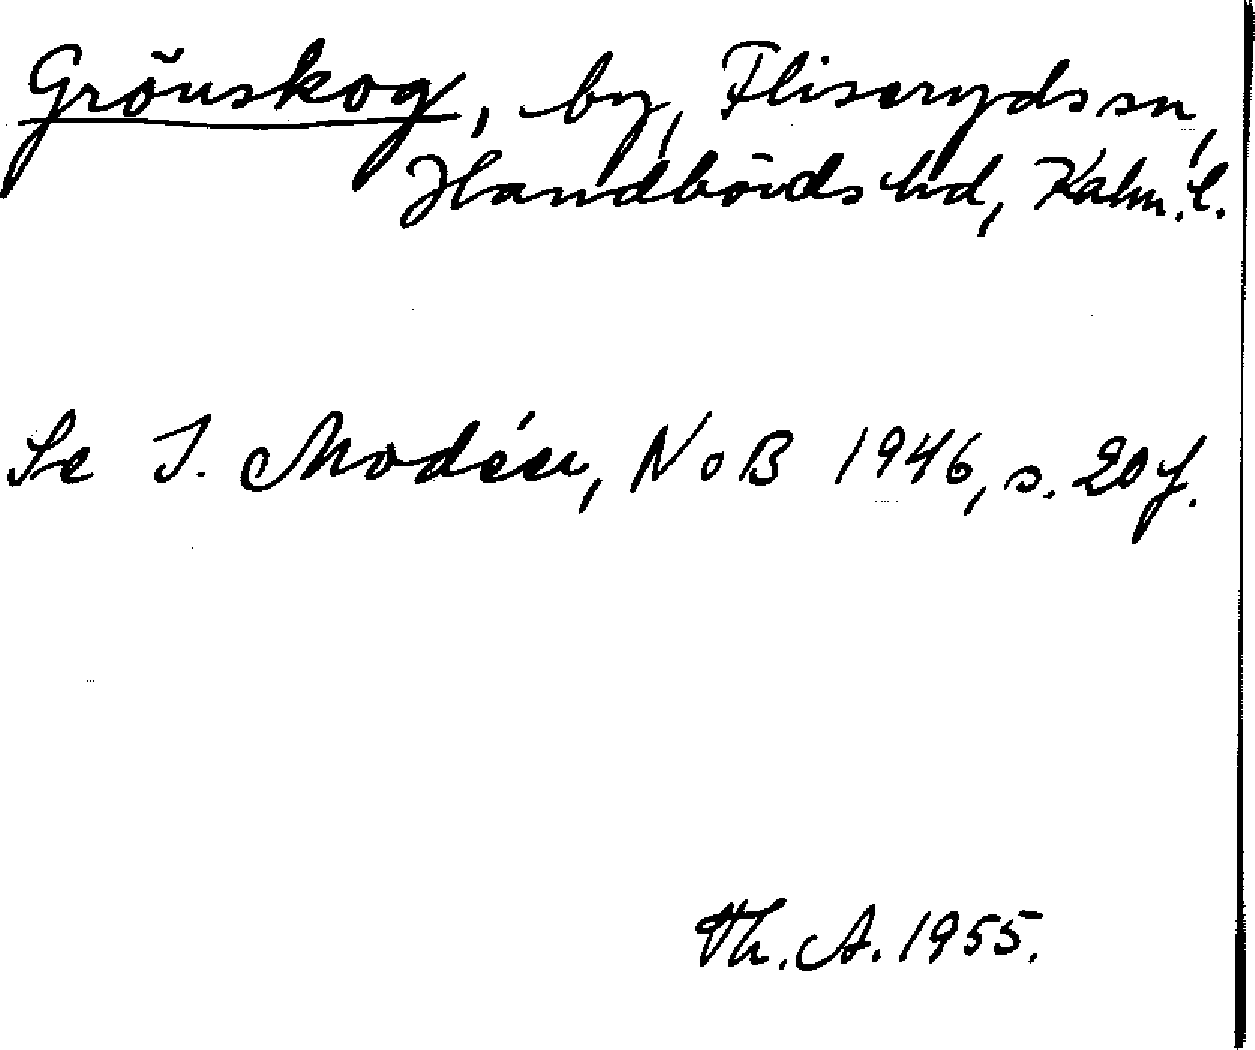 Grönskog, by, Fliseryds sn,
Handbörds hd, Kalm. l.
Se I. Modéer, NoB 1946, s. 20 f.
Th. A. 1955.